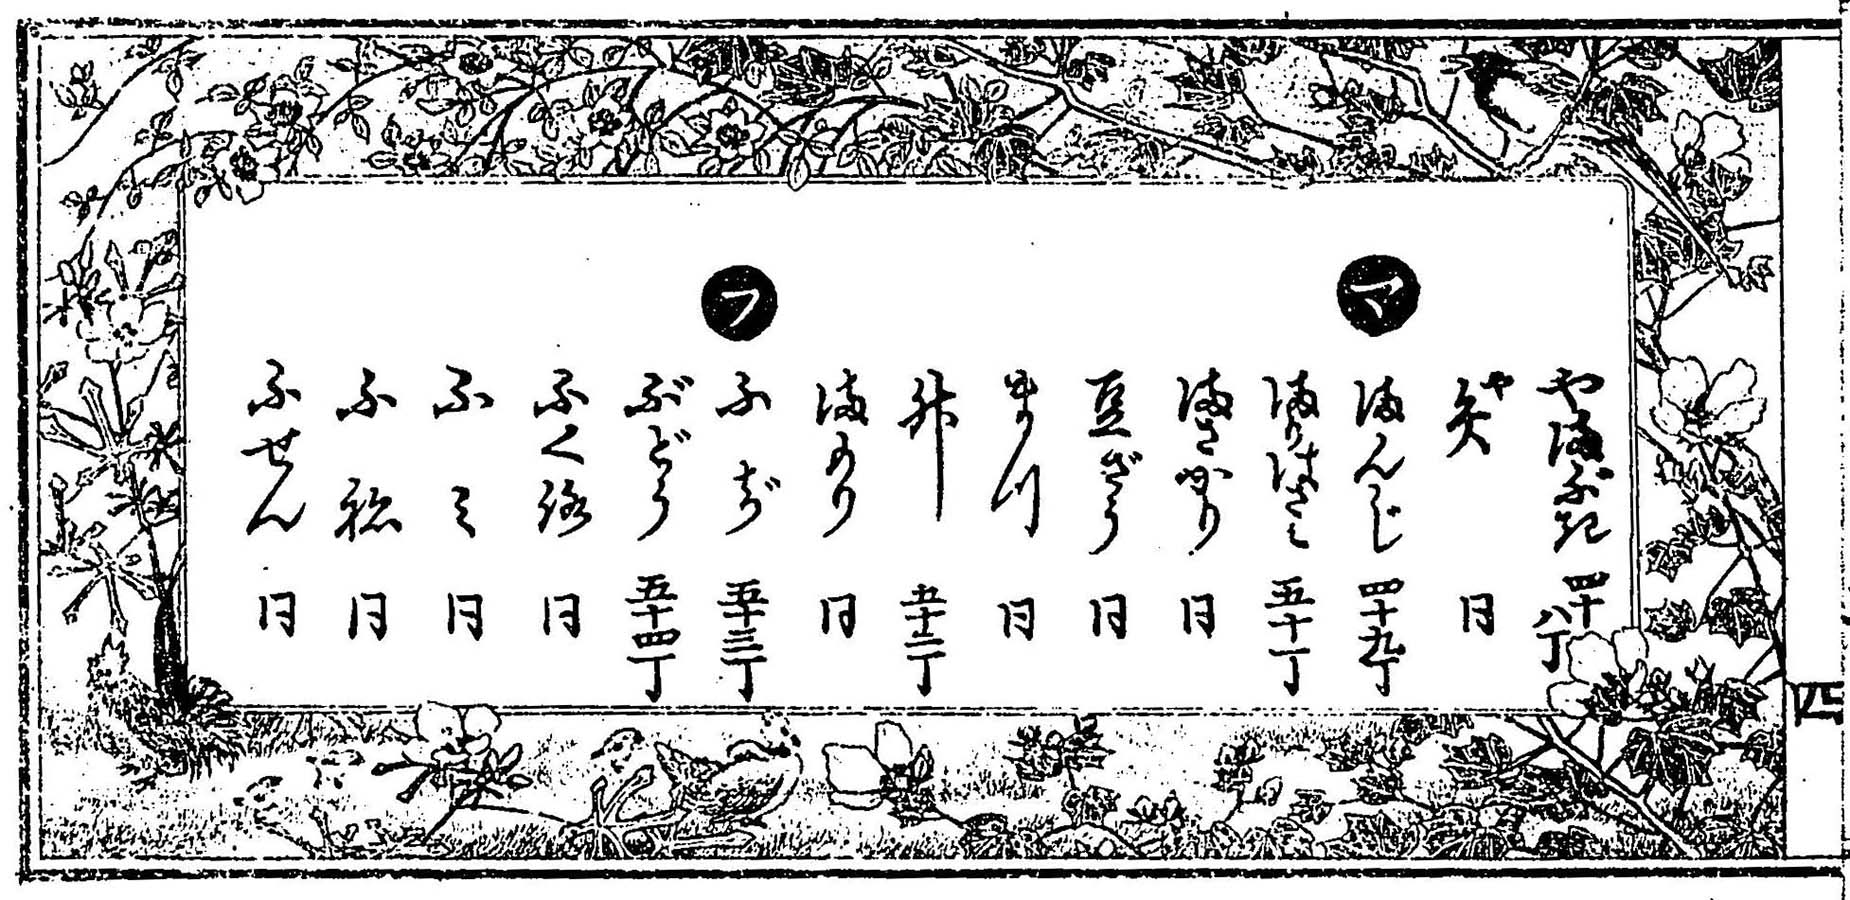 四
やまぶき 四十八丁
矢 や 同
マ
まんじ 四十九丁
まりはさみ 五十一丁
まさかり 同
豆ざう 同
同
升 五十二丁
まもり 同
フ
ふぢ 五十三丁
ぶどう 五十四丁
ふくろ 同
ふミ 同
ふね 同
ふせん 同